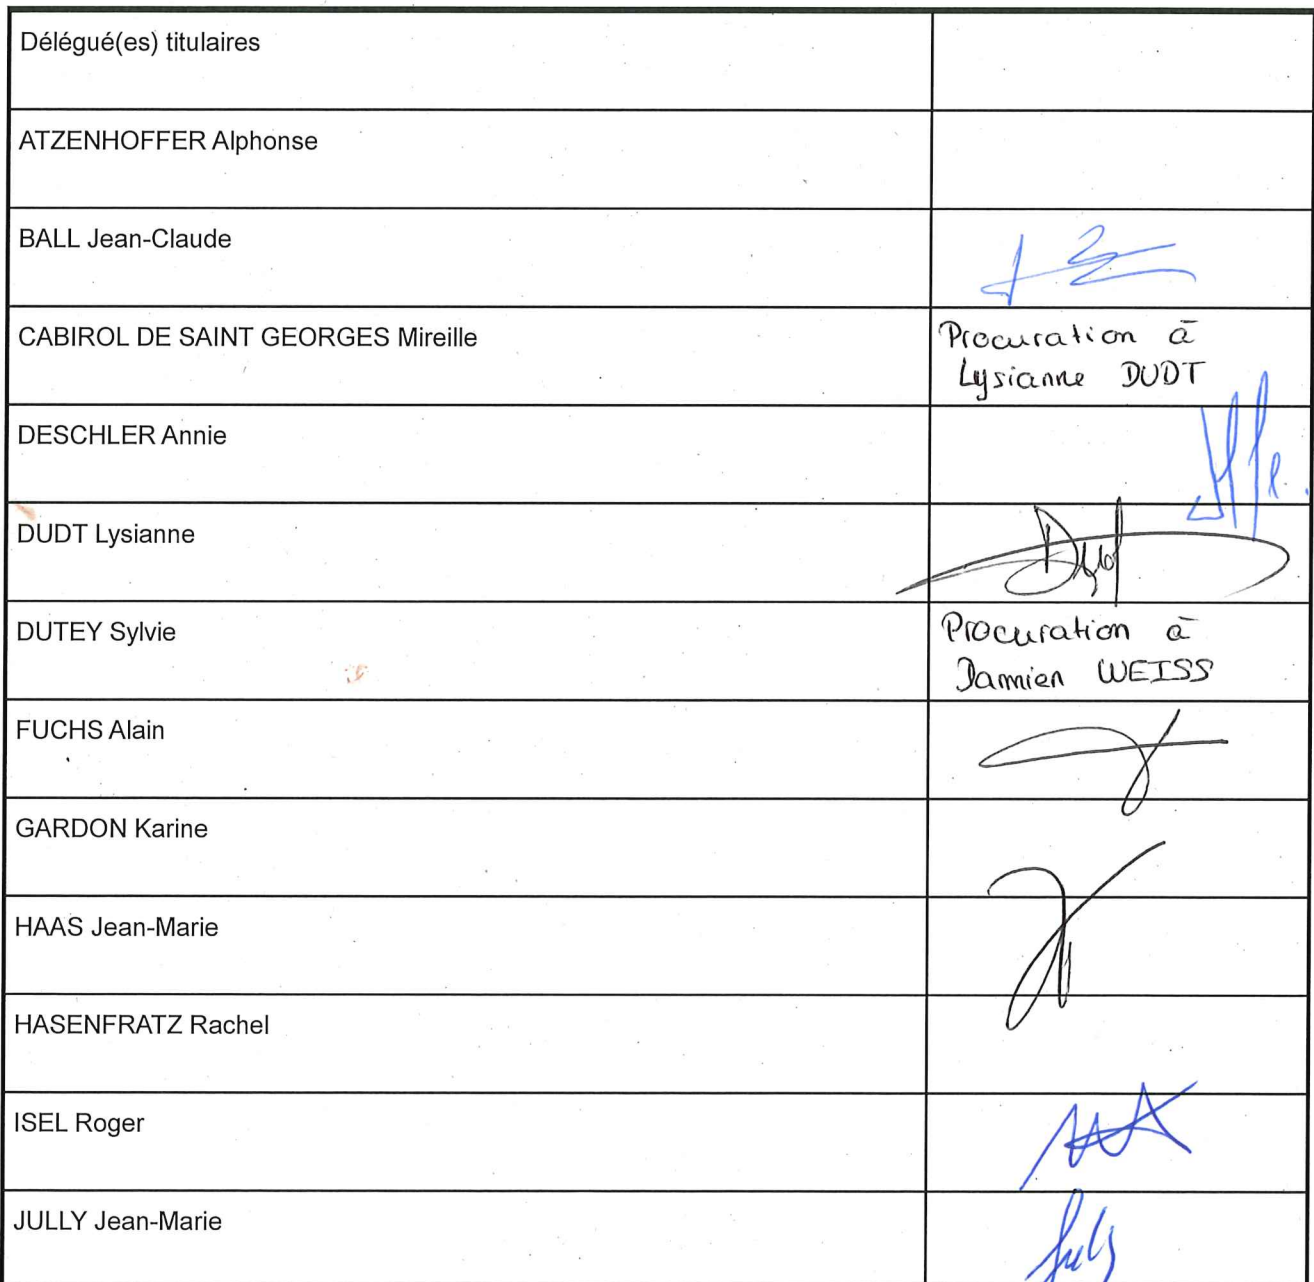 Délégué(es) titulaires
ATZENHOFFER Alphonse
BALL Jean-Claude
CABIROL DE SAINT GEORGES Mireille
Procuration à
Lysianne DUDT
DESCHLER Annie
DUDT Lysianne
Dudt
DUTEY Sylvie
Procuration à
Damien WEISS
FUCHS Alain
GARDON Karine
HAAS Jean-Marie
HASENFRATZ Rachel
ISEL Roger
JULLY Jean-Marie